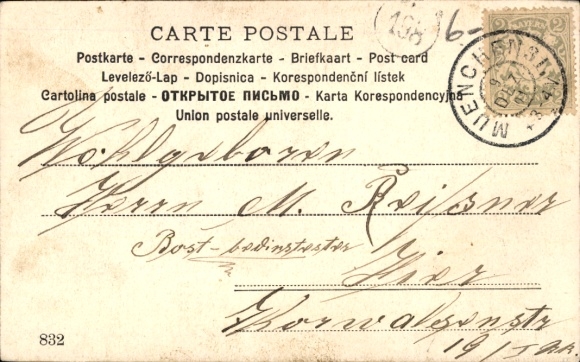 CARTE POSTALE
Postkarte – Correspondenzkarte – Briefkaart – Post card
Levelező-Lap – Dopisnica – Korespondenční lístek
Cartolina postale – ОТКРЫТОЕ ПИСЬМО – Karta Korespondencyjna
Union postale universelle.
BAYERN
MUENCHEN
Wohlgeboren
Herrn M. Reißner
Hier
832